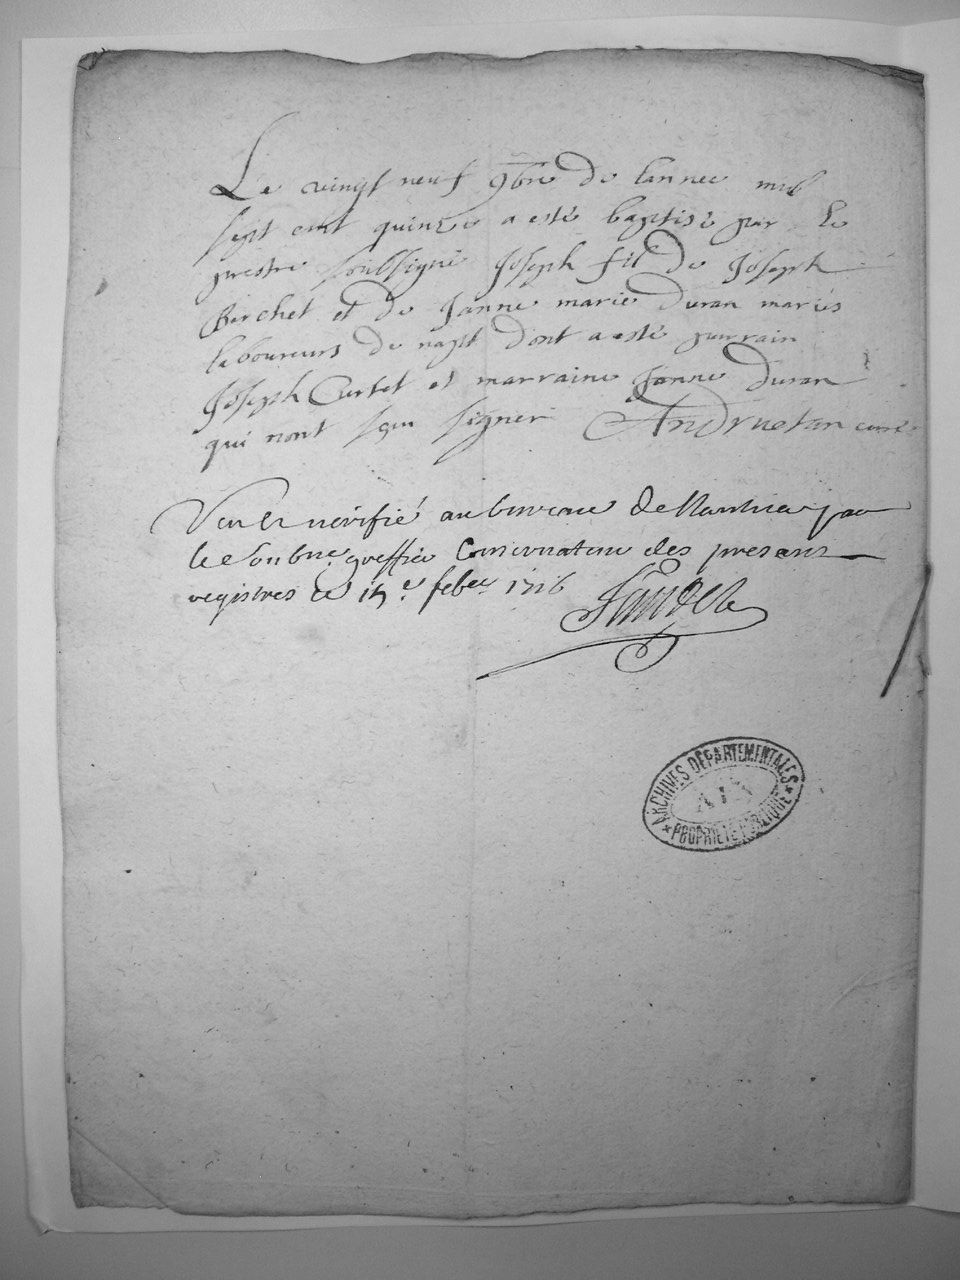 Le vingt neuf 9bre de lannee mil
sept cent quinze a esté baptisé par le
prestre soubsigné Joseph fil de Joseph
Berchet et de Janne marie Duran mariés
laboureurs de napt dont a esté parrain
Joseph Curtet et marraine Janne Duran
qui nont sceu signer Andruetan curé
Veu et vérifié au bureau de Nantua par
le greffier Conservateur des presens
registres ce feber 1716
ARCHIVES DÉPARTEMENTALES
AIN
PROPRIÉTÉ PUBLIQUE